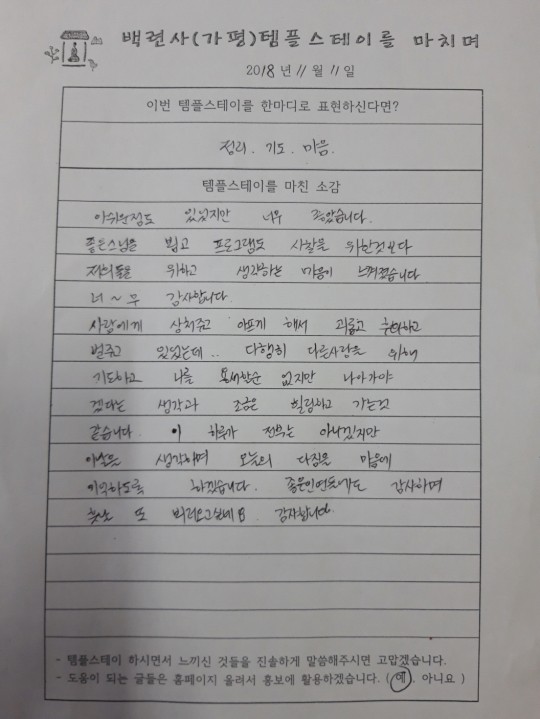 백련사(가평)템플스테이를 마치며
2018년 11월 11일
이번 템플스테이를 한마디로 표현하신다면?
정리. 기도. 마음.
템플스테이를 마친 소감
아쉬운점도 있었지만 너무 좋았습니다.
좋은스님을 뵙고 프로그램도 사찰을 위한것보다
저희들을 위하고 생각하는 마음이 느껴졌습니다
너~무 감사합니다.
사람에게 상처주고 아프게 해서 괴롭고
벌주고 있었는데.. 다행히 다른사람을 위해
기도하고 나를 용서할순 없지만 나아가야
겠다는 생각과 조금은 힐링하고 가는것
같습니다. 이 하루가 전부는 아니겠지만
생각하며 오늘의 다짐을 마음에
기억하도록 하겠습니다. 좋은인연 감사하며
또 감사합니다.
- 템플스테이 하시면서 느끼신 것들을 진솔하게 말씀해주시면 고맙겠습니다.
- 도움이 되는 글들은 홈페이지 올려서 홍보에 활용하겠습니다. ( 예 . 아니요 )